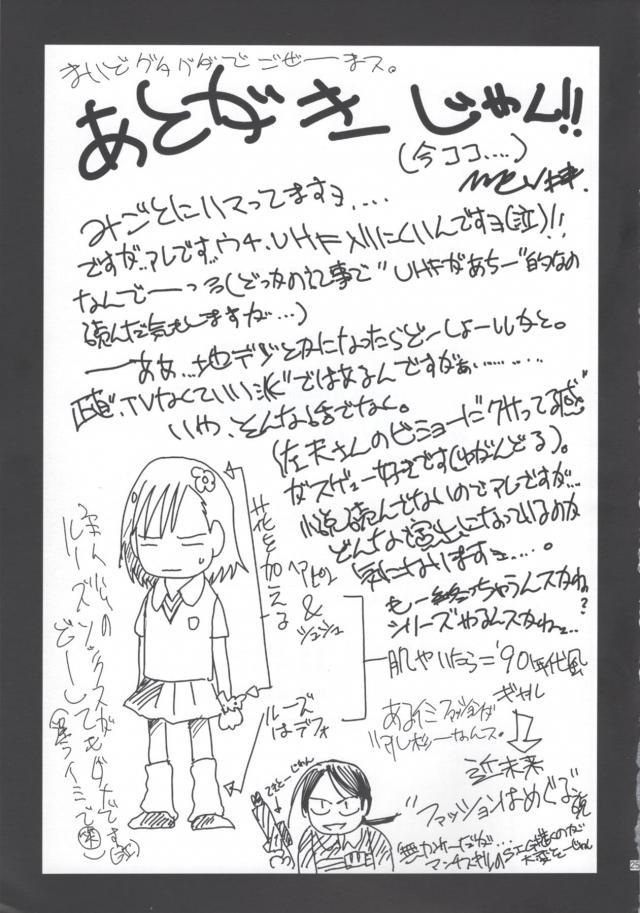 まいどグダグダでござーまス。
あとがきーじゃん!!
(今ココ....)
みごとにハマってますヨ....
ですが..アレです..ウチ、UHF入りにくいんですヨ(泣)!!
なんでーっ(どっかの記事で"UHFがあちー"的なの
読んだ気もしますが...)
ーああ...地デジとかになったらどーしょーいかと。
正直、TVなくていい派"ではあるんですがぁ..........
いや、そんな話でなく。
(佐天さんのビミョーにクサってる感
がスゲェー好きです(ゆがんどる)。
読んでないのでアレですが...
どんな演出になっているのか
気になりますヨ....。
も一終っちゃうんスかね?
シリーズやるんスかねェ..
花を加える
ヘアピン
&
シュシュ
ルーズ
はデフォ
肌やいたら='90年代風
ギャル
あるイミファッションが
近未来
"ファッションはめぐる"説
ルーズソックスがもダメです
どーしても
(違うイミで(笑))
てきとーじゃん
無かれーだが...
大変そーじゃん
25